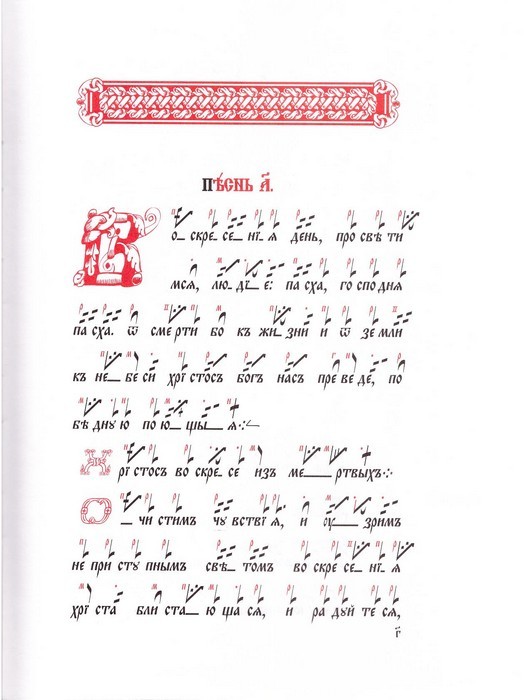 Пѣснь а҃.
Во_скре_се_нїѧ день, про свѣ ти
мсѧ, лю_дъ_е: па сха, го спо днѧ
па сха. ѿ сме рти бо къ жи_зни и ѿ зе мли
къ не_бе си хрі́ стосъ богъ насъ пре ве де, по
бѣ дну ю по ю_щы_ѧ:
Хрі стосъ во скре се изъ ме_ртвыхъ:
О_чи стимъ чу встві ѧ, и оу_зримъ
не при сту пнымъ свѣ_томъ во скре се_нї_ѧ
хрі ста_бли ста_ю ща сѧ, и ра дуй те сѧ,
г҃